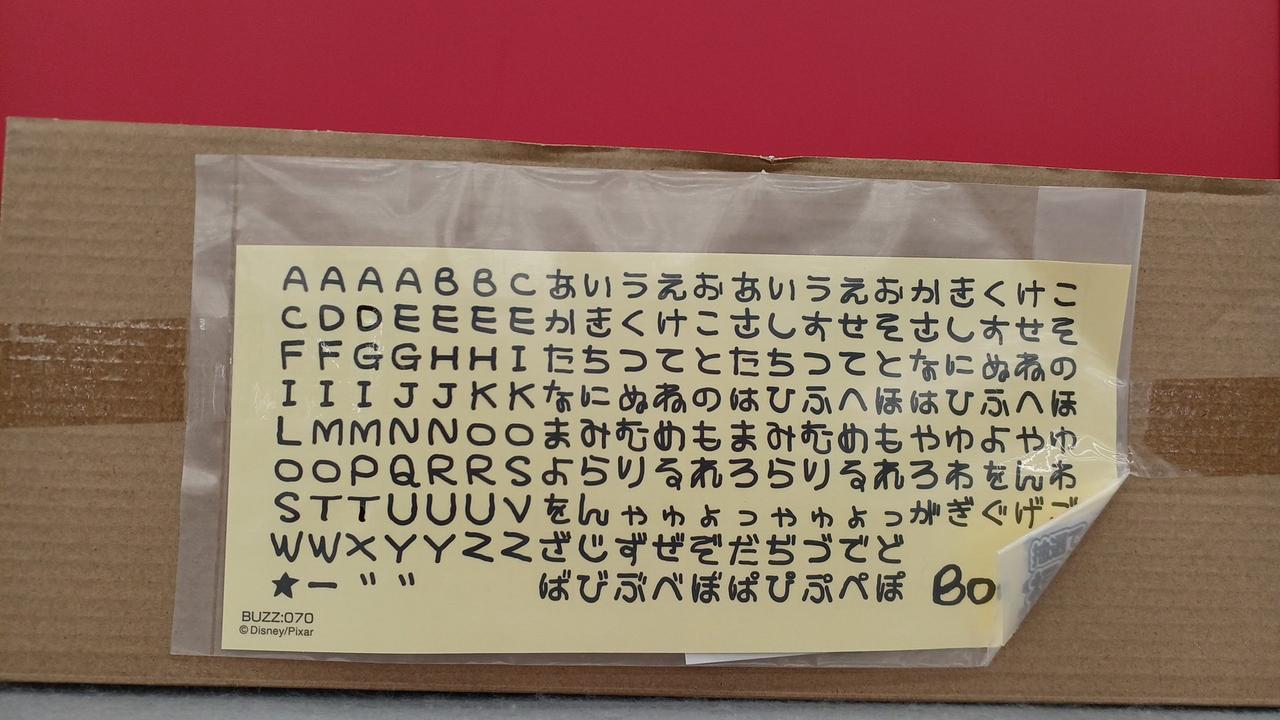 AAAABBCあいうえおあいうえおかきくけこ
CDDEEEEかきくけこさしすせそさしすせそ
FFGGHHIたちつてとたちつてとなにぬねの
IIIJJKKなにぬねのはひふへほはひふへほ
LMMNNOOまみむめもまみむめもやゆよやゆ
OOPQRRSよらりるれろらりるれろわをんわ
STTUUUVをんゃゅょっゃゅょっがぎぐげご
WWXYYZZざじずぜぞだぢづでど
★ー〃〃 ばびぶべぼぱぴぷぺぽ Bo
BUZZ:070
©Disney/Pixar